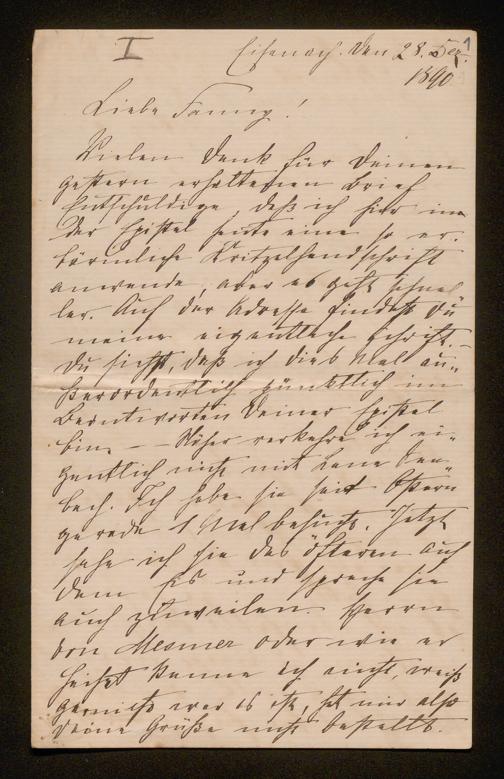 I
1
Eisenach. Den 28. Dez.
1890
Liebe Fanny!
Vielen Dank für Deinen
gestern erhaltenen Brief
Entschuldige, daß ich hier in
der Epistel heute eine so er-
bärmliche Kritzelhandschrift
anwende, aber es geht schnel
ler. Auf der Adresse findest Du
meine eigentliche Schrift. –
Du siehst, daß ich dies Mal au-
ßerordentlich pünktlich im
Beantworten Deiner Epistel
bin. — Näher verkehre ich ei-
gentlich nicht mit Lene
bach. Ich habe sie seit Ostern
gerade 1 Mal besucht. Jetzt
sehe ich sie des öfteren auf
dem Eis und spreche sie
auch zuweilen. Herrn
von Mesmer oder wie er
heißt kenne ich nicht, weiß
garnicht wer es ist, hat mir also
Deine Grüße nicht bestellt.